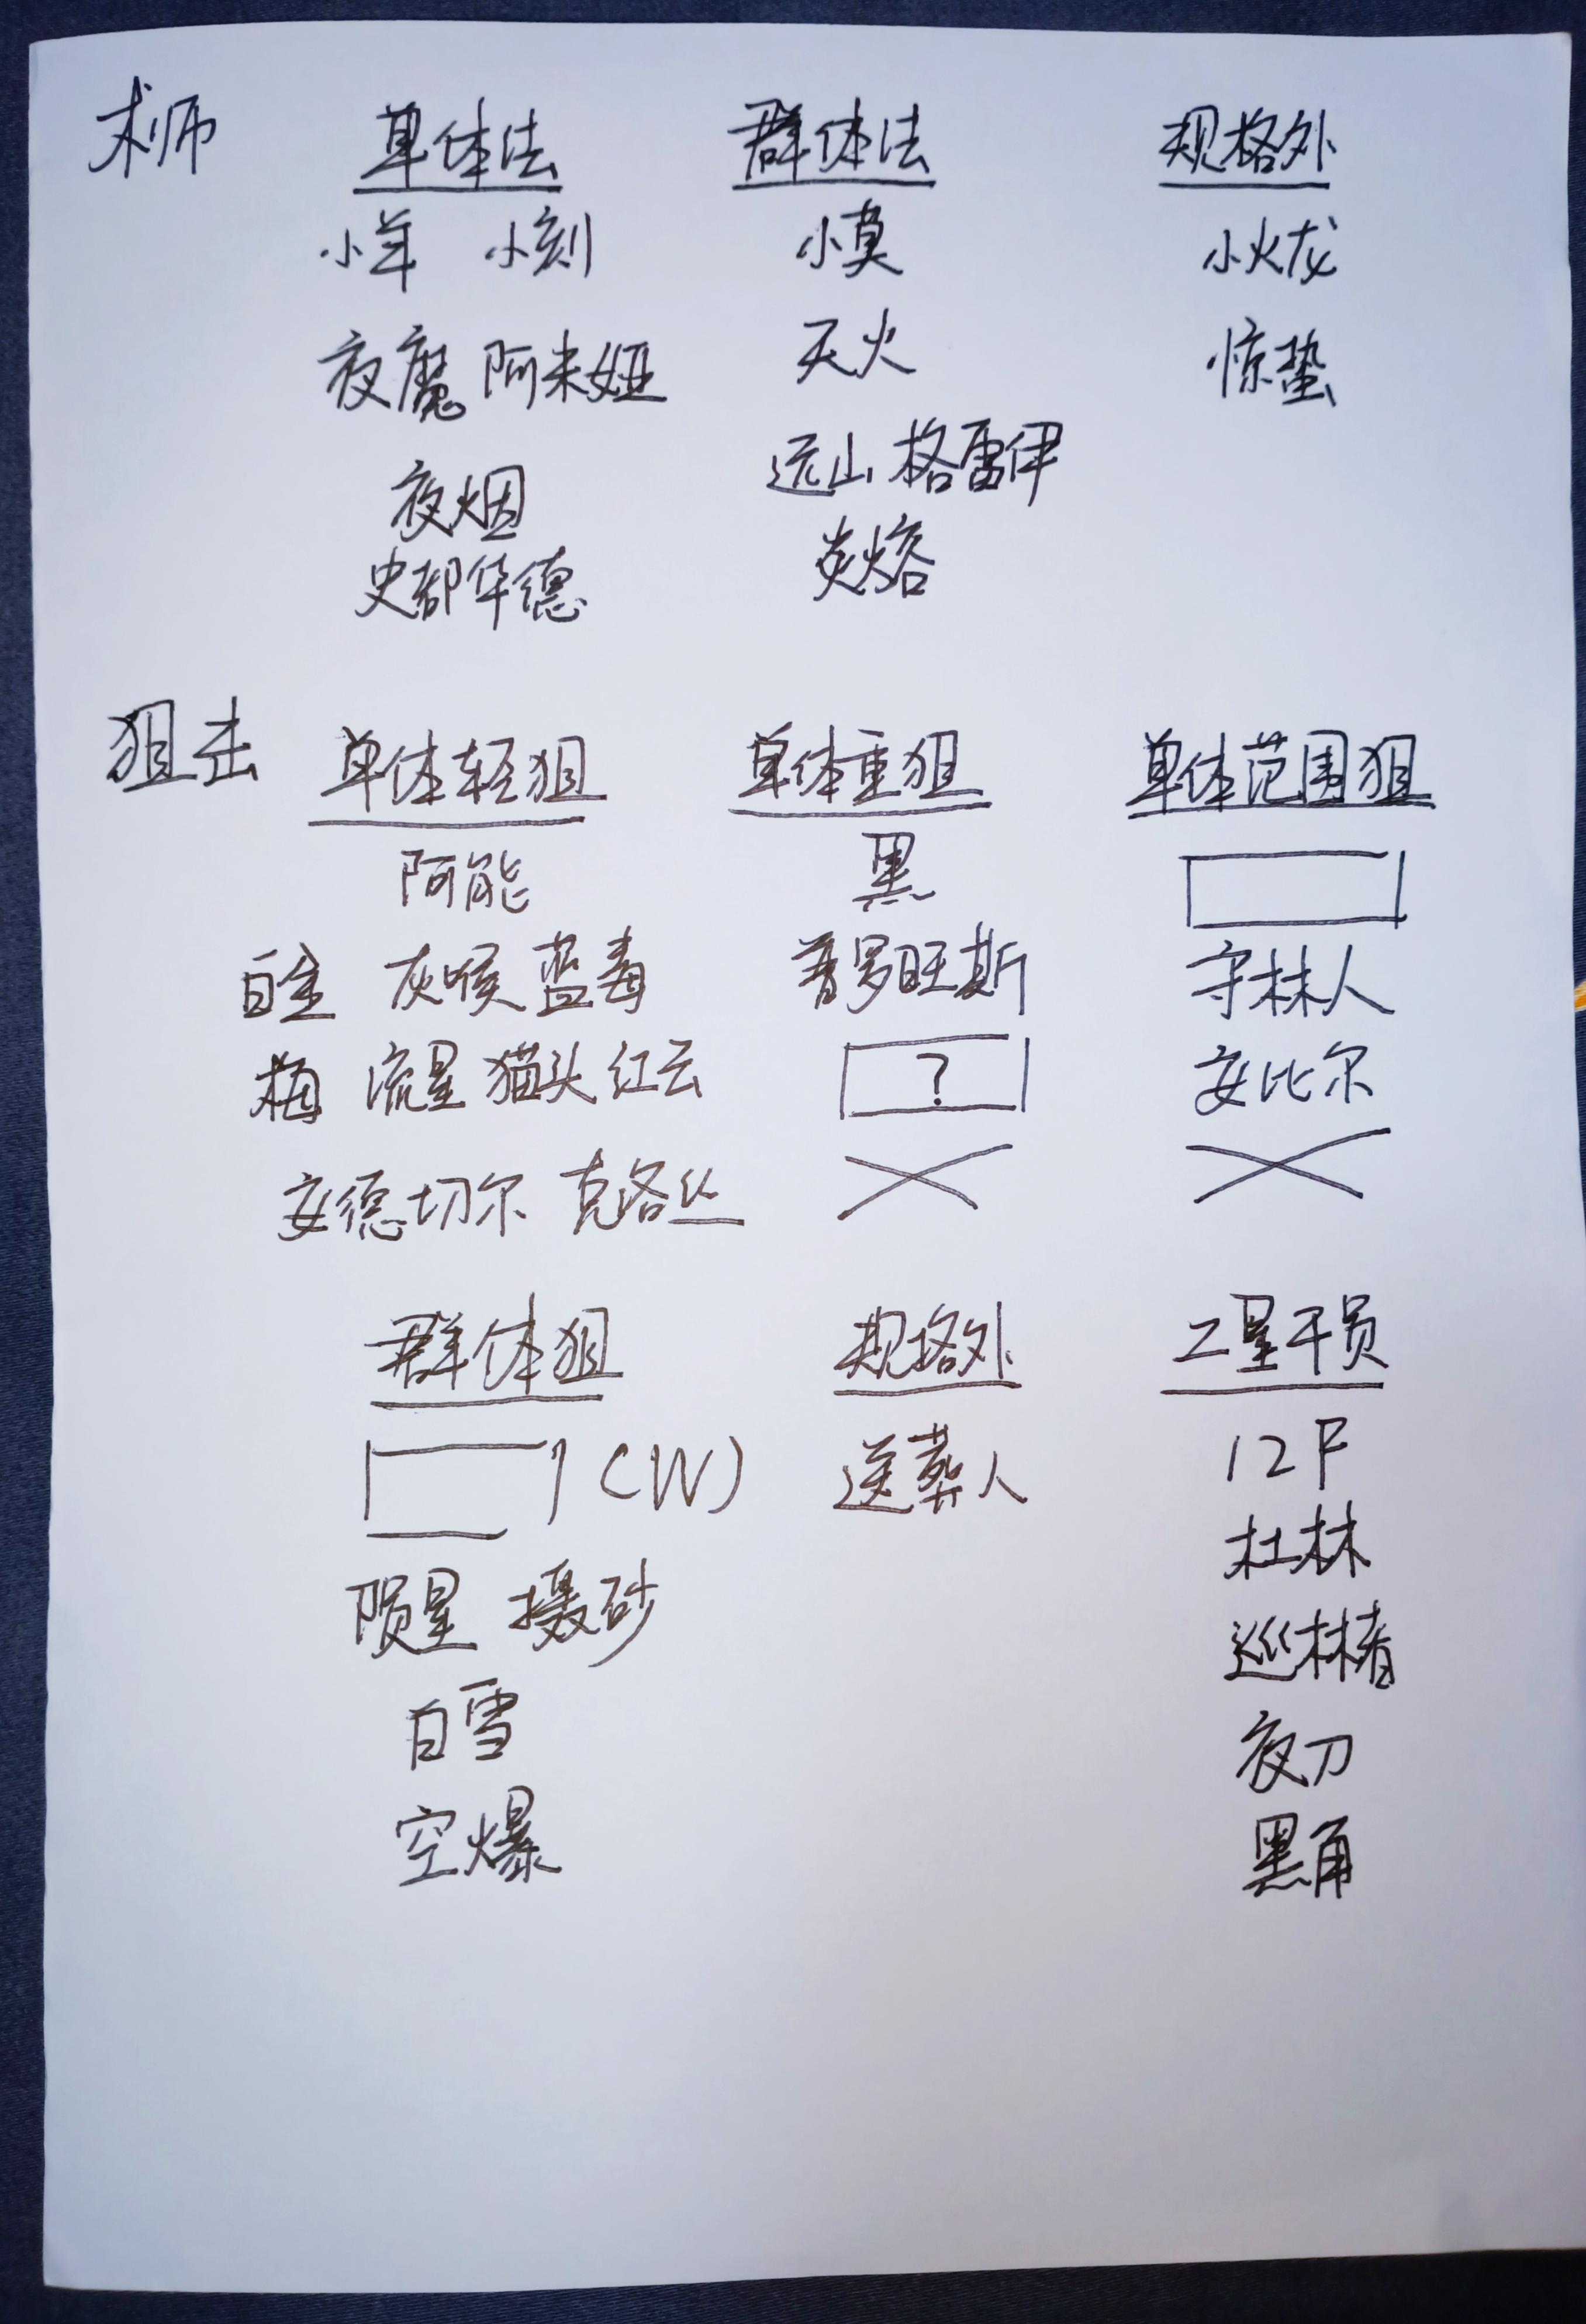 术师 单体法 群体法 规格外
小羊 小刻 小莫 小火龙
夜魔 阿米娅 天火 惊蛰
夜烟 远山 格雷伊
史都华德 炎熔
狙击 单体轻狙 单体重狙 单体范围狙
阿能 黑
白金 灰喉 蓝毒 普罗旺斯 守林人
梅 流星 猫头 红云 ? 安比尔
安德切尔 克洛丝
群体狙 规格外 二星干员
(W) 送葬人 12F
陨星 慑砂 杜林
白雪 巡林者
空爆 夜刀
黑角